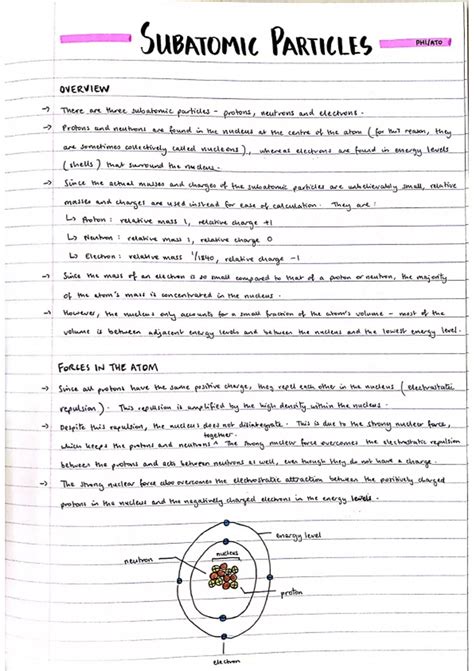 SUBATOMIC PARTICLES
PHI/ATO
OVERVIEW
→ There are three subatomic particles - protons, neutrons and electrons.
→ Protons and neutrons are found in the nucleus at the centre of the atom (for this reason, they
are sometimes collectively called nucleons), whereas electrons are found in energy levels
(shells) that surround the nucleus.
→ Since the actual masses and charges of the subatomic particles are unbelievably small, relative
masses and charges are used instead for ease of calculation. They are:
↳ Proton: relative mass 1, relative charge +1
↳ Neutron: relative mass 1, relative charge 0
↳ Electron: relative mass 1/1840, relative charge -1
→ Since the mass of an electron is so small compared to that of a proton or neutron, the majority
of the atom's mass is concentrated in the nucleus.
→ However, the nucleus only accounts for a small fraction of the atom's volume - most of the
volume is between adjacent energy levels and between the nucleus and the lowest energy level.
FORCES IN THE ATOM
→ Since all protons have the same positive charge, they repel each other in the nucleus (electrostatic
repulsion). This repulsion is amplified by the high density within the nucleus.
→ Despite this repulsion, the nucleus does not disintegrate. This is due to the strong nuclear force,
which keeps the protons and neutrons together. The strong nuclear force overcomes the electrostatic repulsion
between the protons and acts between neutrons as well, even though they do not have a charge.
→ The strong nuclear force also overcomes the electrostatic attraction between the positively charged
protons in the nucleus and the negatively charged electrons in the energy levels.
energy level
nucleus
neutron
proton
electron